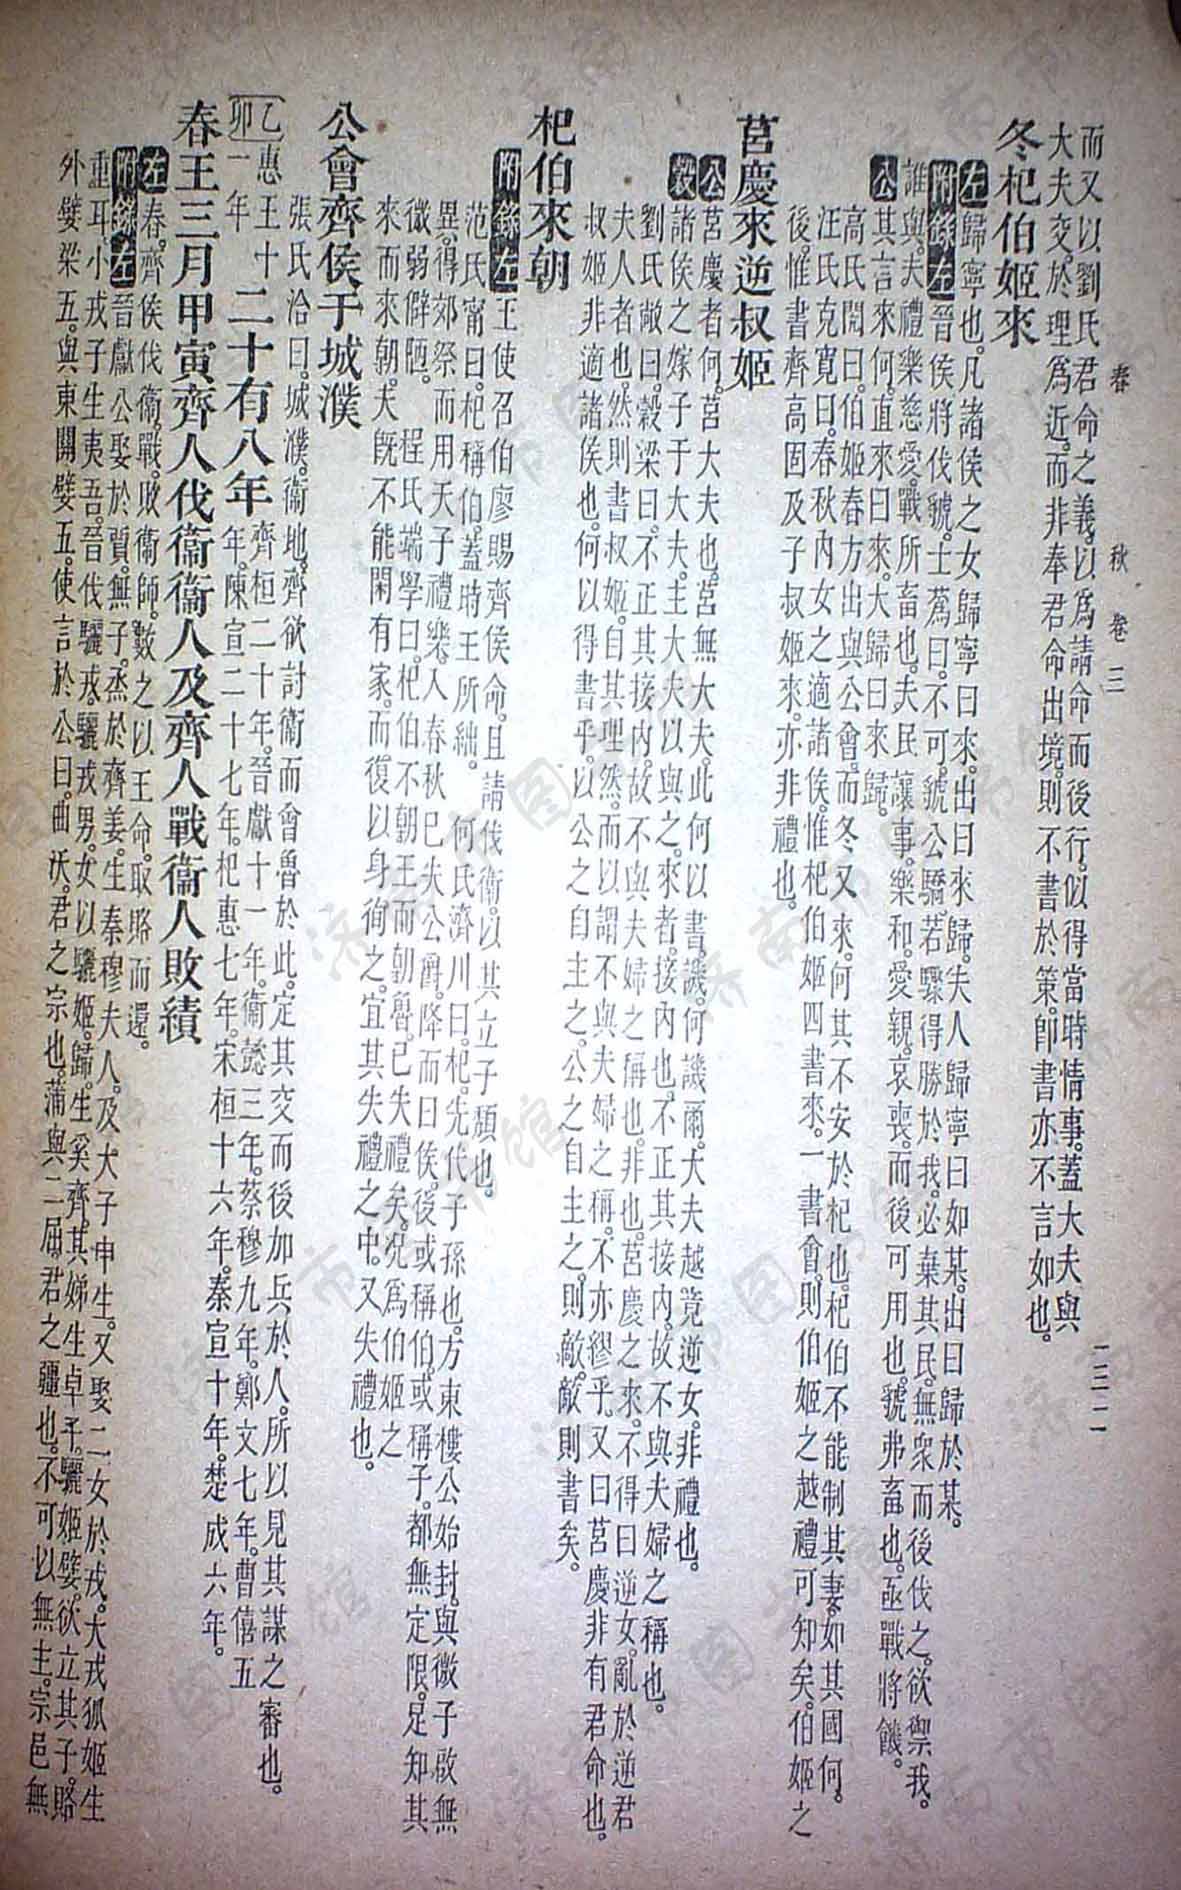 春秋 卷三 一三二
而又以劉氏君命之義以為請命而後行似得當時情事蓋大夫與
大夫交於理為近而非奉君命出境則不書於策即書亦不言如也
冬杞伯姬來
左歸寧也凡諸侯之女歸寧曰來出曰來歸夫人歸寧曰如某出曰歸於某
附錄左晉侯將伐虢士蒍曰不可虢公驕若驟得勝於我必棄其民無眾而後伐之欲禦我
誰與夫禮樂慈愛戰所畜也夫民讓事樂和愛親哀喪而後可用也虢弗畜也亟戰將饑
公其言來何直來曰來大歸曰來歸
高氏閌曰伯姬春方出與公會而冬又來何其不安於杞也杞伯不能制其妻如其國何
汪氏克寬曰春秋內女之適諸侯惟杞伯姬四書來一書會則伯姬之越禮可知矣伯姬之
後惟書齊高固及子叔姬來亦非禮也
莒慶來逆叔姬
公莒慶者何莒大夫也莒無大夫此何以書譏何譏爾大夫越竟逆女非禮也
穀諸侯之嫁子于大夫主大夫以與之來者接內也不正其接內故不與夫婦之稱也
劉氏敞曰穀梁曰不正其接內故不與夫婦之稱也非也莒慶之來不得曰逆女亂於逆君
夫人者也然則書叔姬自其理然而以謂不與夫婦之稱不亦繆乎又曰莒慶非有君命也
叔姬非適諸侯也何以得書乎以公之自主之公之自主之則敵敵則書矣
杞伯來朝
附錄左王使召伯廖賜齊侯命且請伐衞以其立子頹也
范氏甯曰杞稱伯蓋時王所絀 何氏濟川曰杞先代子孫也方東樓公始封與微子啟無
異得郊祭而用天子禮樂入春秋已失公爵降而曰侯後或稱伯或稱子都無定限足知其
微弱僻陋 程氏端學曰杞伯不朝王而朝魯已失禮矣況為伯姬之
來而來朝夫既不能閑有家而復以身徇之宜其失禮之中又失禮也
公會齊侯于城濮
張氏洽曰城濮衞地齊欲討衞而會魯於此定其交而後加兵於人所以見其謀之審也
乙卯 惠王十一年 二十有八年 齊桓二十年晉獻十一年衞懿三年蔡穆九年鄭文七年曹僖五
年陳宣二十七年杞惠七年宋桓十六年秦宣十年楚成六年
春王三月甲寅齊人伐衞衞人及齊人戰衞人敗績
左春齊侯伐衞戰敗衞師數之以王命取賂而還
附錄左晉獻公娶於賈無子烝於齊姜生秦穆夫人及大子申生又娶二女於戎大戎狐姬生
重耳小戎子生夷吾晉伐驪戎驪戎男女以驪姬歸生奚齊其娣生卓子驪姬嬖欲立其子賂
外嬖梁五與東關嬖五使言於公曰曲沃君之宗也蒲與二屈君之疆也不可以無主宗邑無